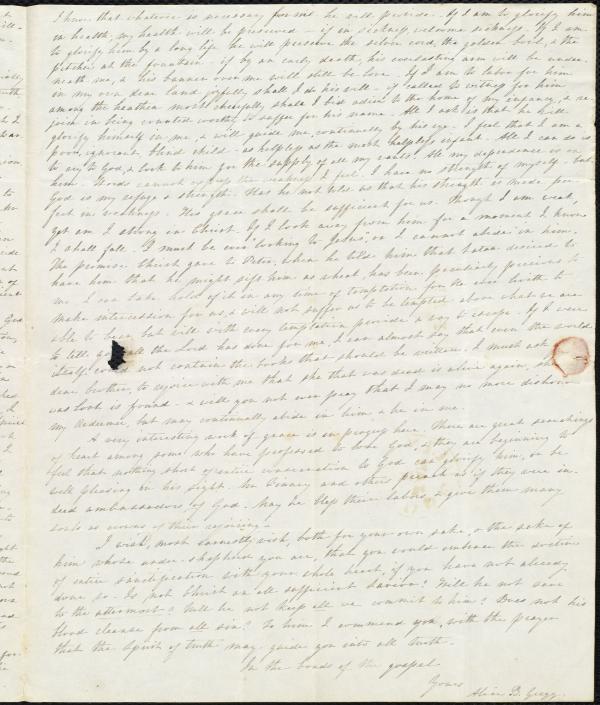 I know that whatever is necessary for me he will provide. If I am to glorify him
in health, my health will be preserved - if in sickness, welcome sickness. If I am
to glorify him by a long life he will preserve the silver cord, the golden bowl, & the
pitcher at the fountain - if by an early death, his everlasting arm will be under-
neath me, & his banner over me will still be love. If I am to labor for him
in my own dear land joyfully shall I do his will - if called to witness for him
among the heathen most cheerfully shall I bid adieu to the home of my infancy, & re-
joice in being counted worthy to suffer for his name. All I ask is that he will
glorify himself in me, & will guide me continually by his eye. I feel that I am a
poor, ignorant, blind child - as helpless as the most helpless infant. All I can do is
to cry to God, & look to him for the supply of all my wants. All my dependence is on
him. Words cannot express the weakness I feel. I have no strength of myself - but
God is my refuge & strength. Has he not told us that his strength is made per-
fect in weakness. His grace shall be sufficient for us. Though I am weak,
yet am I strong in Christ. If I look away from him for a moment I know
I shall fall. I must be ever "looking to Jesus," or I cannot abide in him.
The promise Christ gave to Peter, when he told him that Satan desired to
have him that he might sift him as wheat, has been peculiarly precious to
me. I can take hold of it in any time of temptation for he ever liveth to
make intercession for us, & will not suffer us to be tempted above what we are
able to bear but will with every temptation provide a way to escape. If I were
to tell you all the Lord has done for me, I can almost say that even the world
itself could not contain the books that should be written. I must ask
dear brother, to rejoice with me that she that was dead is alive again, she
was lost is found - & will you not ever pray that I may no more dishonor
my Redeemer, but may continually abide in him & he in me.
A very interesting work of grace is in progress here. There are great searchings
of heart among some who have professed to love God, & they are beginning to
feel that nothing short of entire consecration to God can glorify him, or be
well pleasing in his sight. Mr Finney and others preach as if they were in-
deed ambassadors of God. May he bless their labors & give them many
souls as crowns of their rejoicing.
I wish, most earnestly wish, both for your own sake, & the sake of
him whose under-shepherd you are, that you could embrace the doctrine
of entire sanctification with your whole heart, if you have not already
done so. Is not Christ an all sufficient savior? Will he not save
to the uttermost? Will he not keep all we commit to him? Does not his
blood cleanse from all sin? To him I commend you, with the prayer
that the Spirit of truth may guide you into all truth.
In the bonds of the gospel
Yours
Alice B.